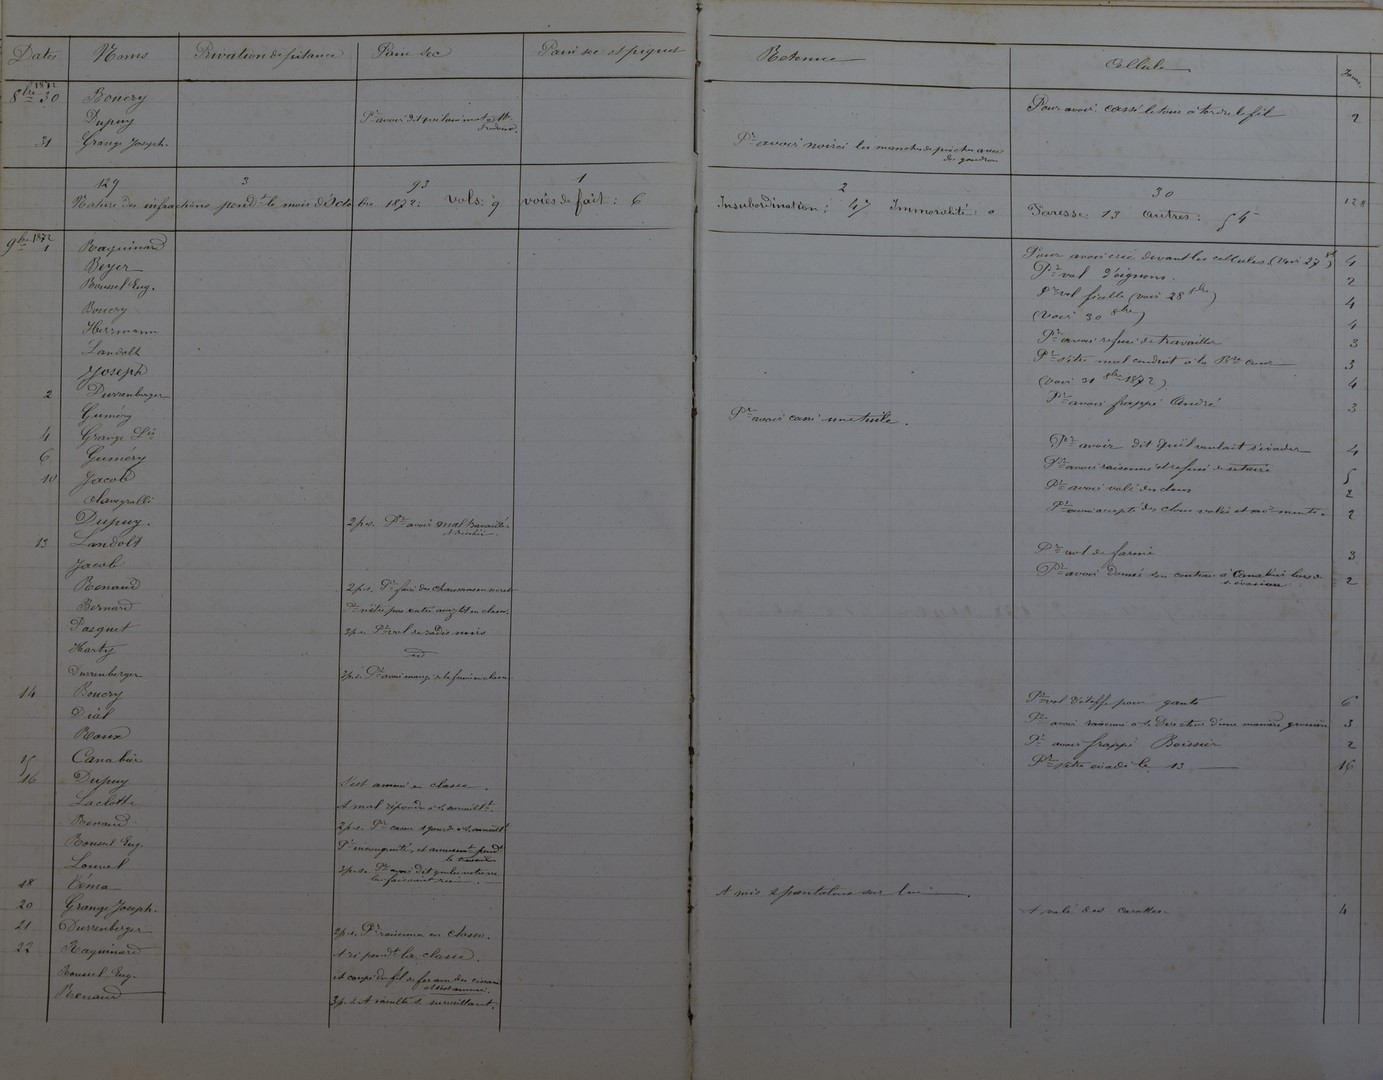 Dates Noms Privation de pitance Pain sec Pain sec et piquet Retenue Cellule Jours
8bre 1872 30 Boucry Pour avoir cassé le tour à tordre le fil 2
Dupuy Pr avoir dit
31 Grange Joseph. Pr avoir noirci les manches de pioches avec du goudron
129 3 93 1 2 30
Nature des infractions pendt le mois d'Octobre 1872: Vols: 9 voies de fait: 6 Insubordination: 47 Immoralité: 0 Paresse: 13 Autres: 54 128
9bre 1872 1 Raguinard Pour avoir crié devant les cellules (Voir 27 8bre) 4
Beyer Pr vol d'oignons. 2
Roussel Eug. Pr vol ficelle (voir 28 8bre) 4
Boucry (Voir 30 8bre) 4
Herrmann Pr avoir refusé de travailler 3
Landolt Pr s'être mal conduit à la cour 3
Joseph (voir 31 8bre 1872) 4
2 Durrenberger Pr avoir frappé André 3
Guméry Pr avoir cassé une tuile.
4 Grange Pr avoir dit qu'il voulait s'évader 4
6 Guméry Pr avoir raisonné et refusé de se taire 5
10 Jacob Pr avoir volé des clous 2
Pr avoir accepté des clous volés et avoir menti. 2
Dupuy. 2 p.s. Pr avoir mal travaillé
13 Landolt Pr vol de farine 3
Jacob Pr avoir donné son couteau à Canabié lors de s. évasion 2
Renaud 2 p.s. Pr faire des chaussons
Bernard Pr n'être pas entré en classe.
Pasquet 2 p.s. Pr vol de radis noirs
Harty id
Durrenberger 2 p.s. Pr avoir mangé en classe
14 Boucry Pr vol d'étoffe pour gants 6
Diel Pr avoir raisonné à le Directeur d'une manière grossière 3
Roux Pr avoir frappé Boissier 2
15 Pr s'être évadé le 13 15
16 Dupuy S'est amusé en classe.
Laclotte A mal répondu à s. surveillt.
Renaud 2 p.s. Pr
Roussel Eug. Pr incongruité, et amusemt pendt le travail
Louvel 2 p.s. Pr avoir dit que les notes ne lui faisaient rien.
18 Téma A mis 2 pantalons sur lui.
20 Grange Joseph. A volé des carottes. 4
21 Durrenberger 2 p.s. Pr raisonner en classe.
22 Raguinard A ri pendt la classe.
Roussel Eug. A coupé du fil de fer avec des ciseaux
Renaud 3 p.s. A insulté s. surveillant.